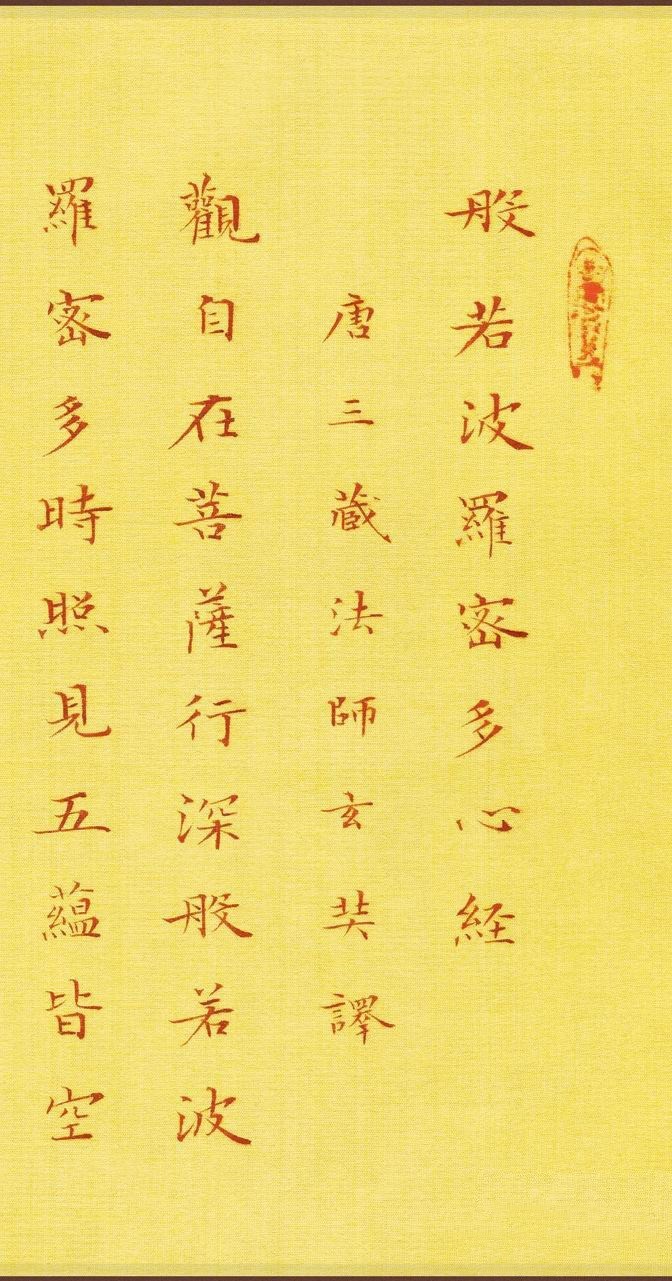 般若波羅密多心経
唐三蔵法師玄奘譯
觀自在菩薩行深般若波
羅密多時照見五蘊皆空